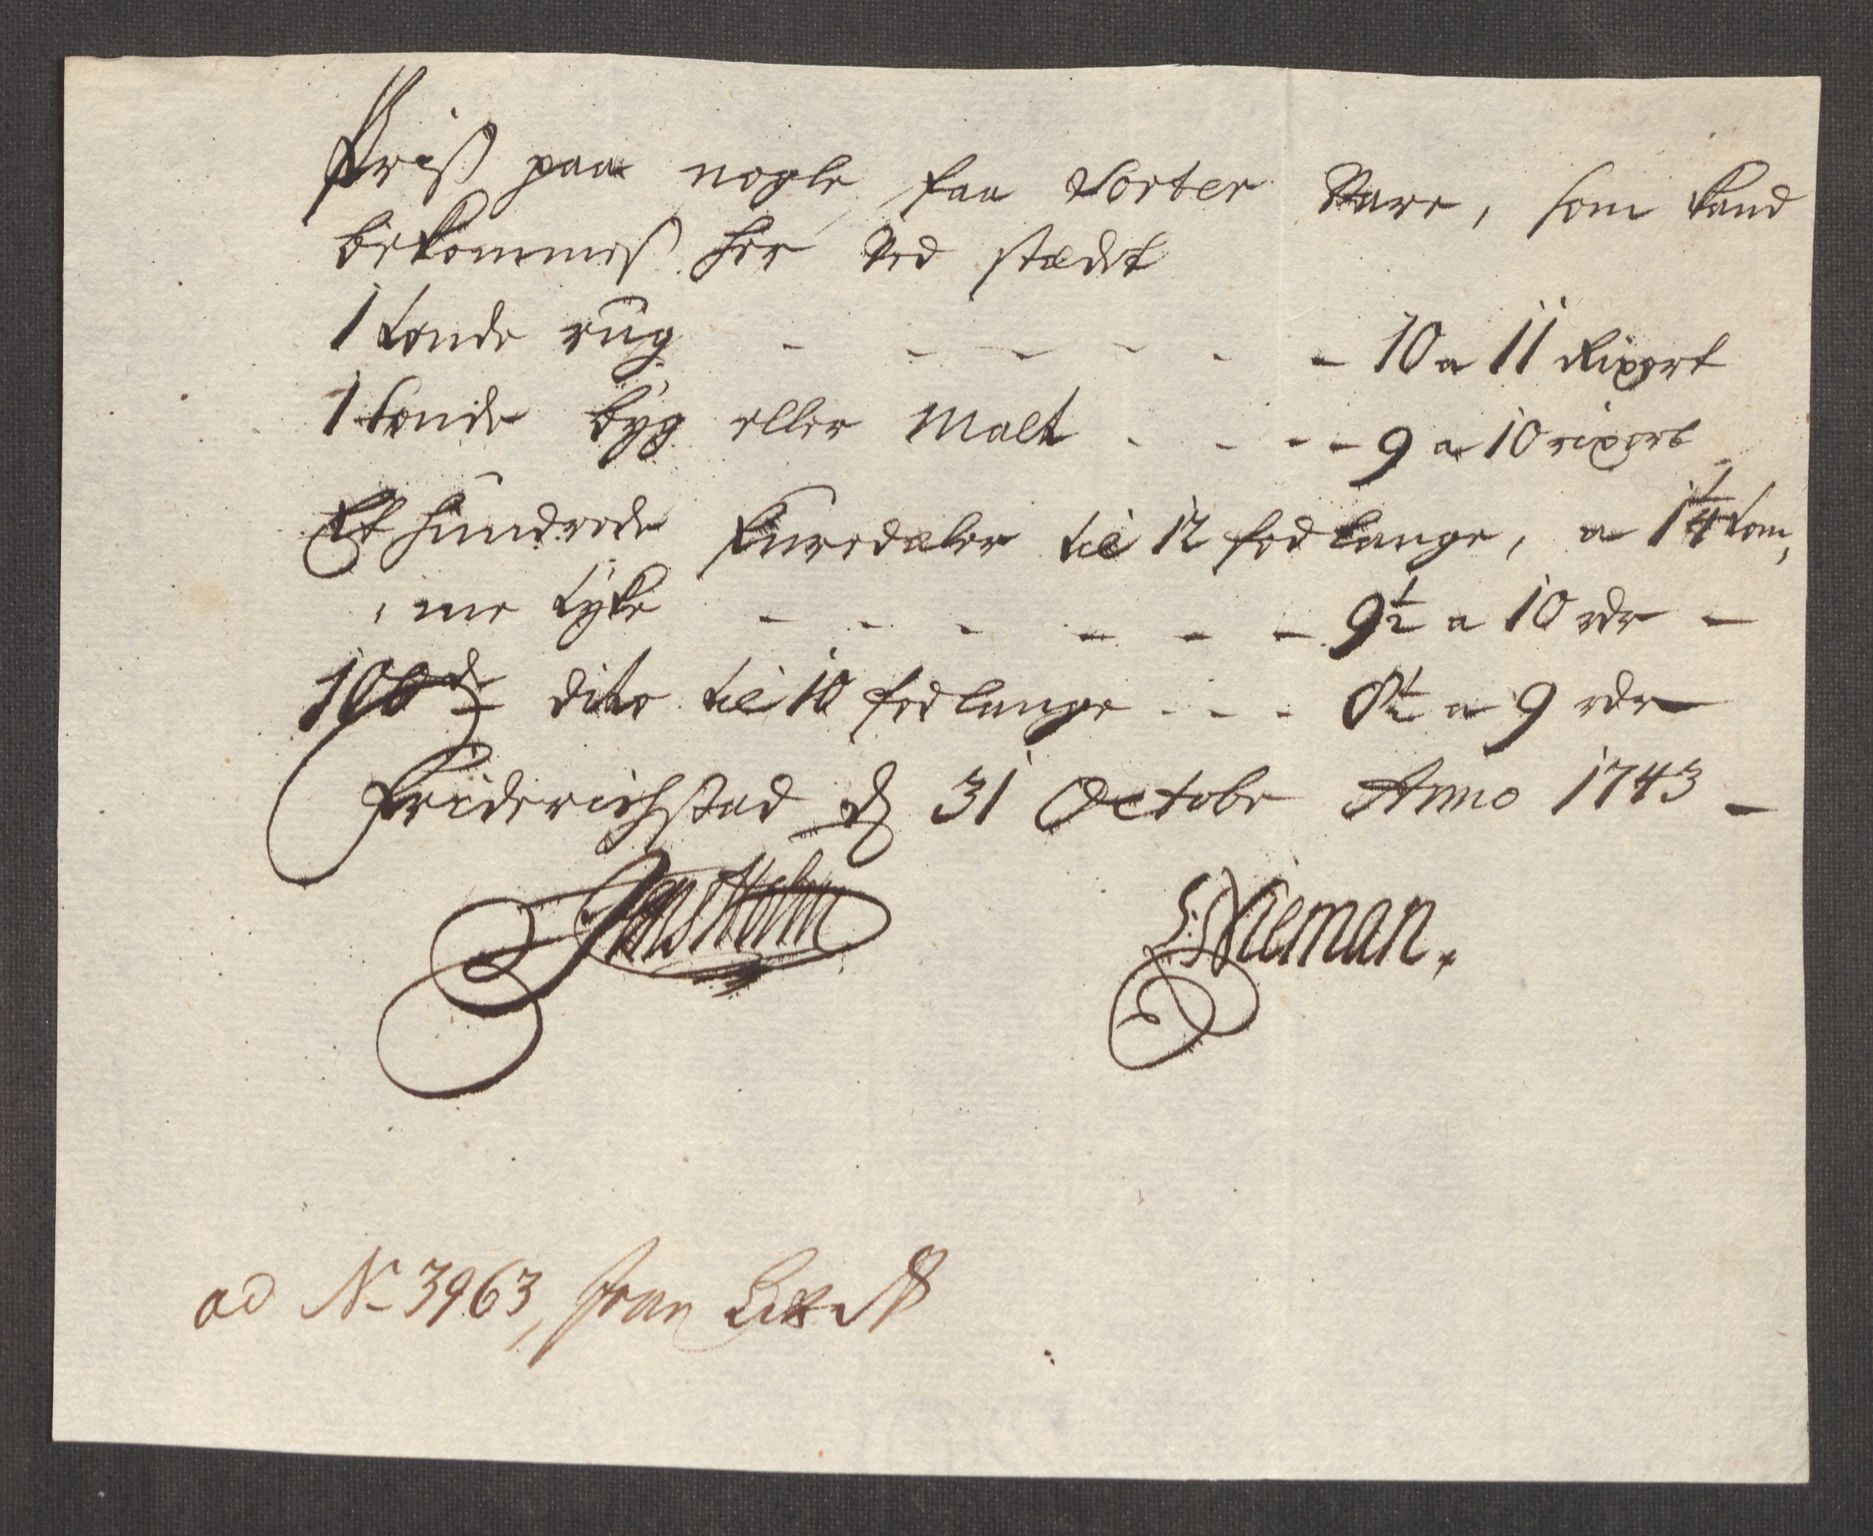 Priß paa nogle faa Sorter Vare, som kand
bekommeß her ved stædet
1 tønde rug - - - - - - 10 a 11 Rixort
1 tønde byg eller Malt - - - - 9 a 10 rixort
Et hundrede furedæler til 12 fod lange, a 1 1/4 tom,
me tyke - - - - - - 9 1/2 a 10 rdr -
100de dito til 10 fod lange - - - 8 1/2 a 9 rdr
Friderichstad d 31 Octobr Anno 1743 -
Jens Holm
Nieman.
ad No 3963,